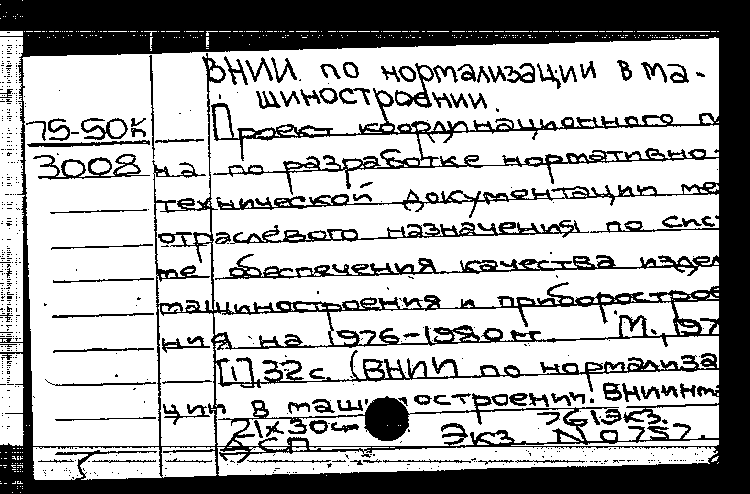 ВНИИ по нормализации в ма-
шиностроении.
75-50К
Проект координационного п
3008
на по разработке нормативно-
технической документации ме
отраслевого назначения по сис
ме обеспечения качества издел
машиностроения и приборострое
ния на 1976-1980 гг. М., 197
[1], 32 с. (ВНИИ по нормализа
ции в маш остроении. ВНИИНма
21х30см 761экз.
БСП. Экз. N 0757.